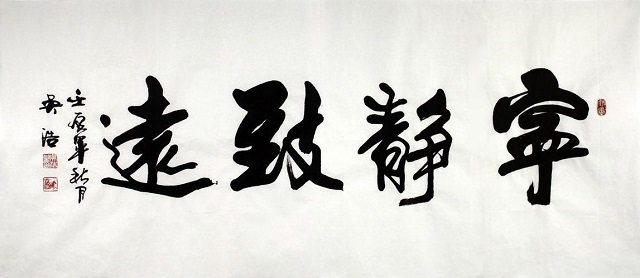 寧静致遠
壬辰年秋月
吴浩